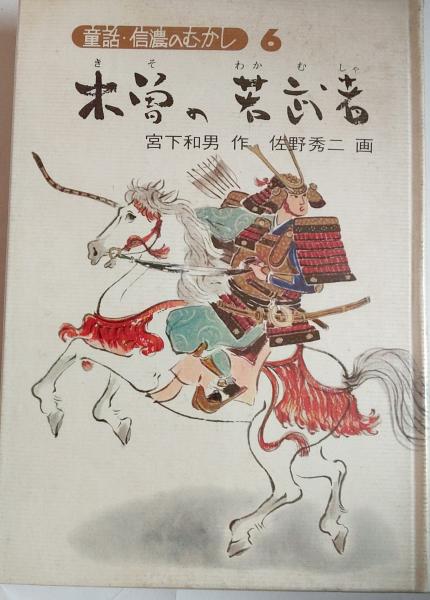 童話・信濃のむかし 6
きそ わかむしゃ
木曽の若武者
宮下和男 作 佐野秀二 画